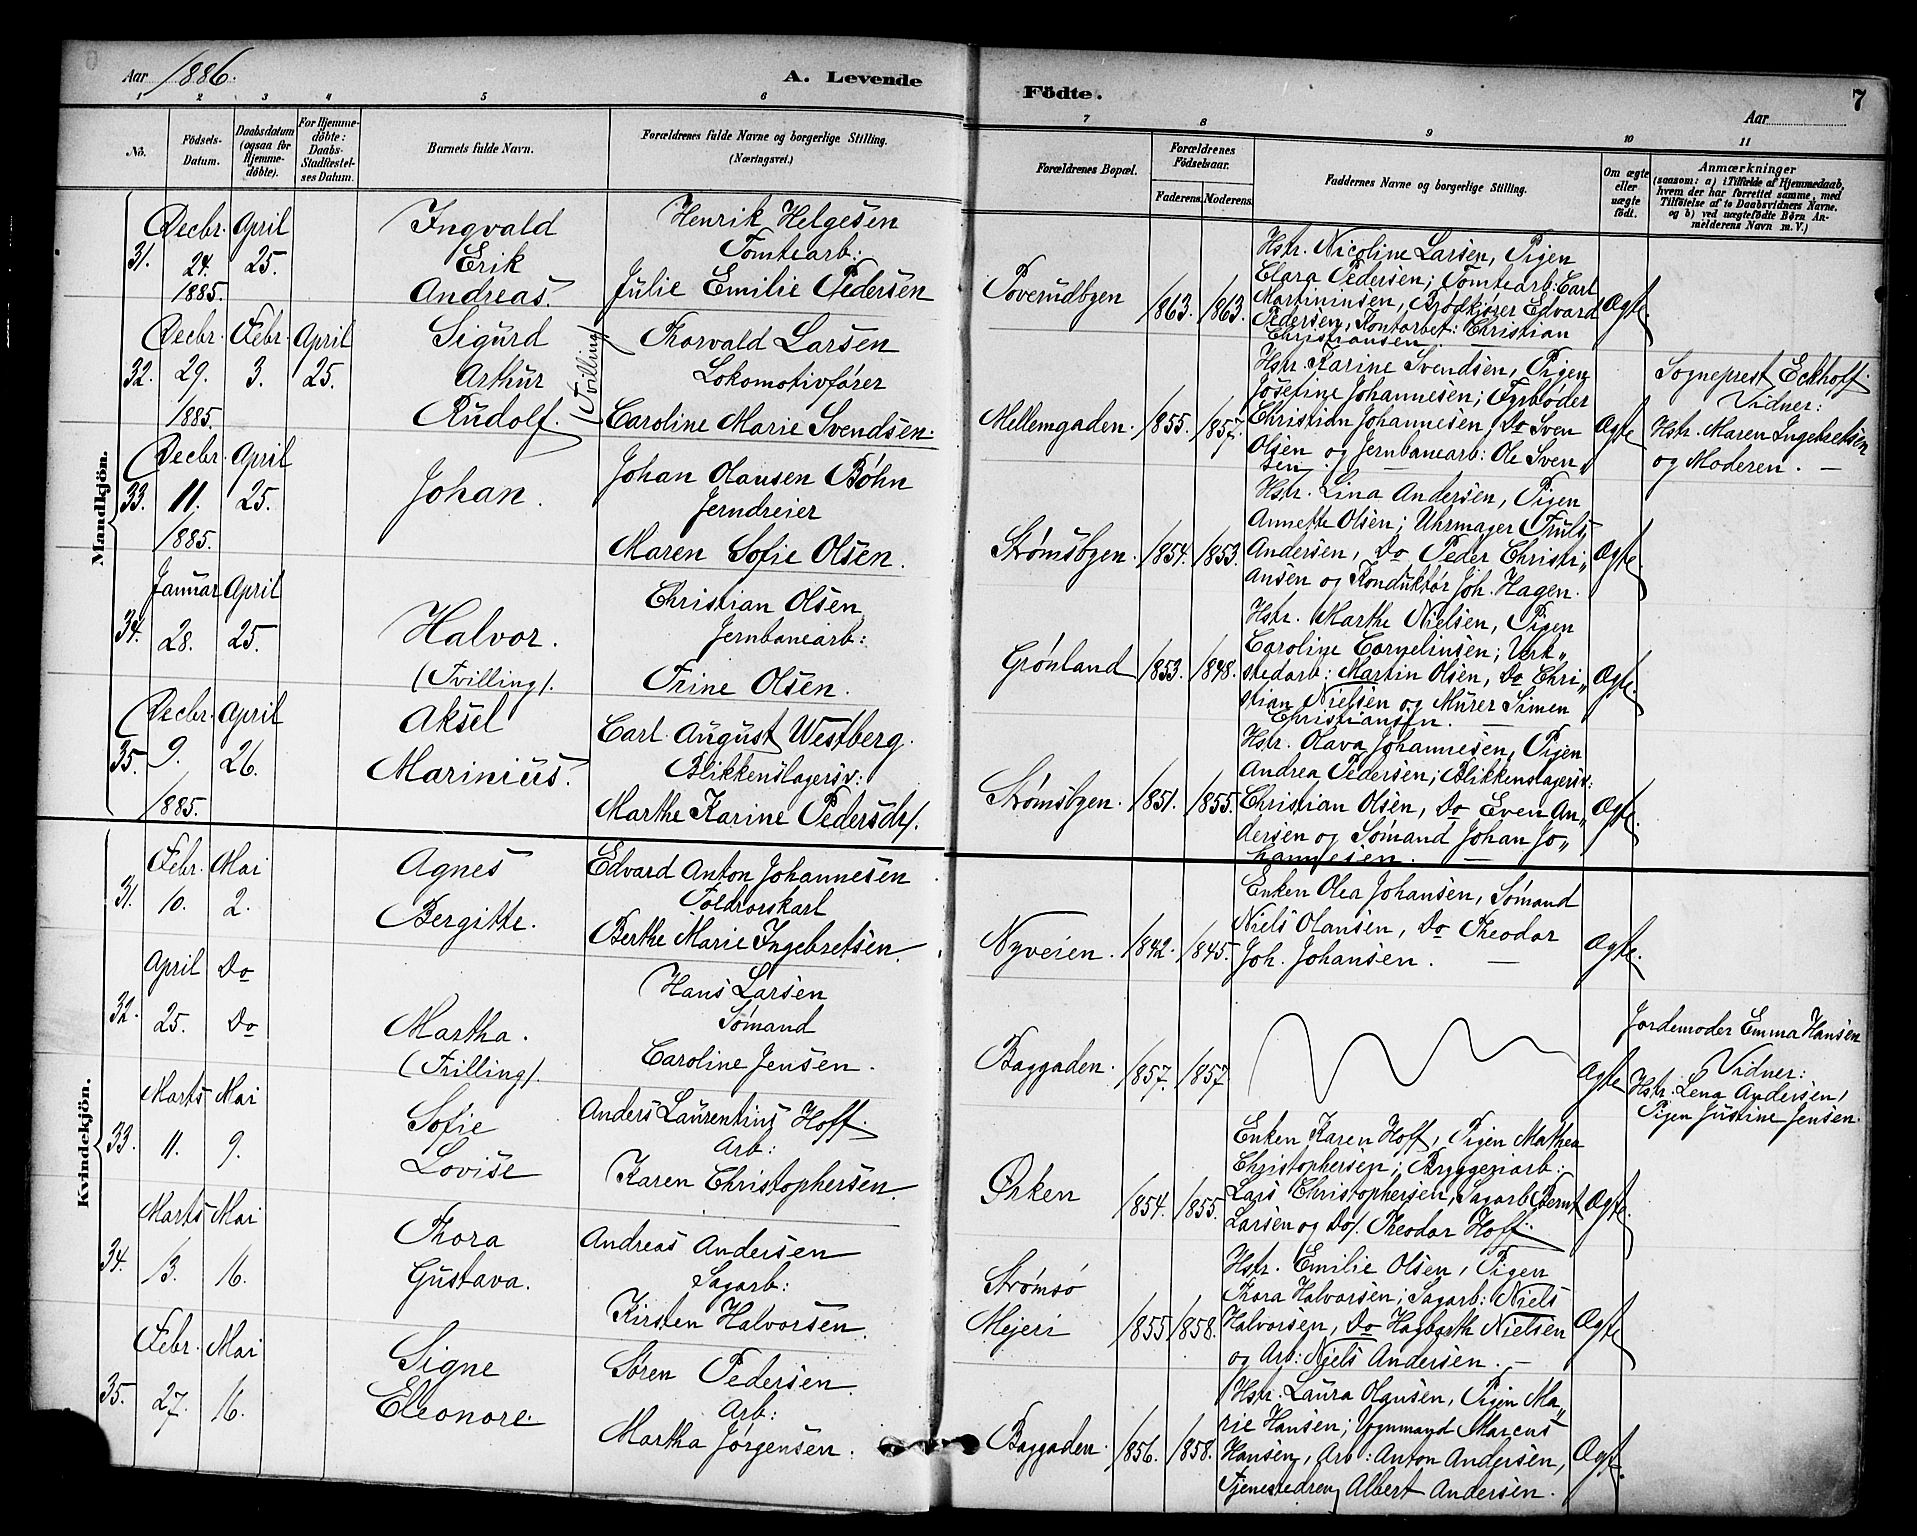 Aar 1886.
A. Levende
Födte.
7
Aar
1 2 3 4 5 6 7 8 9 10 11
No.
Födsels-Datum.
Daabsdatum (ogsaa for Hjemme-döbte).
For Hjemme-döbte: Daabs-Stadfæstel-ses Datum.
Barnets fulde Navn.
Forældrenes fulde Navne og borgerlige Stilling.
(Næringsvei.)
Forældrenes Bopæl.
Forældrenes Födselsaar.
Faderens. Moderens.
Faddernes Navne og borgerlige Stilling.
Om ægte eller uægte födt.
Anmærkninger
(saasom: a) i Tilfælde af Hjemmedaab,
hvem der har forrettet samme, med
Tilföielse af to Daabsvidners Navne.
og b) ved uægtefödte Börn An-
melderens Navn m. V.)
Mandkjön.
31.
Decbr. 24. 1885.
April 25.
Ingvald
Erik
Andreas.
Henrik Helgesen
Tomtearb:
Julie Emilie Pedersen
Toverudbyen
1863. 1863.
Hstr. Nicoline Larsen, Pigen
Clara Pedersen; Tomtearb: Carl
Martininsen, Brödkjörer Edvard
Pedersen, Kontorbet: Christian
Christiansen.
Ægte.
32.
Decbr. 29. 1885.
Febr. 3.
April 25.
Sigurd
Arthur
Rudolf.
(Tvilling)
Thorvald Larsen
Lokomotivfører
Caroline Marie Svendsen.
Mellemgaden.
1855. 1857.
Hstr. Karine Svendsen, Pigen
Josefine Johannesen; Fyrbøder
Christian Johannesen, Do Sven
Olsen og Jernbanearb: Ole Sven"
sen
Ægte
Sogneprest Eckhoff.
Vidner:
Hstr. Maren Ingebretsen
og Moderen. —
33.
Decbr. 11. 1885.
April 25.
Johan.
Johan Olausen Bøhn
Jerndreier
Maren Sofie Olsen.
Strømsbyen.
1854. 1853.
Hstr. Lina Andersen, Pigen
Annette Olsen; Uhrmager Truls
Andersen, Do Peder Christi"
ansen og Konduktør Joh. Hagen.
Ægte.
34.
Januar 28.
April 25.
Halvor.
(Tvilling).
Christian Olsen
Jernbanearb:
Trine Olsen.
Grønland
1853. 1848.
Hstr. Marthe Nielsen, Pigen
Caroline Corneliusen; Verk"
stedarb: Martin Olsen, Do Chri"
stian Nielsen og Murer Simen
Christiansen. —
Ægte.
35.
Decbr. 9. 1885.
April 26.
Aksel
Marinius.
Carl August Westberg.
Blikkenslagersv:
Marthe Karine Pedersdr.
Strømsbyen.
1851. 1855.
Hstr. Olava Johannesen, Pigen
Andrea Pedersen; Blikkenslagersv:
Christian Olsen, Do Even An"
dersen og Sømand Johan Jo"
hannesen. —
Ægte.
Kvindekjön.
31.
Febr. 10.
Mai 2.
Agnes
Bergitte.
Edvard Anton Johannesen
Toldrorskarl
Berthe Marie Ingebretsen.
Nyveien.
1842. 1845.
Enken Olea Johansen, Sømand
Niels Olansen, Do Theodor
Joh. Johansen. —
Ægte.
32.
April 25.
Do Do
Martha.
(Trilling).
Hans Larsen
Sømand
Caroline Jensen.
Baggaden.
1857. 1857
Ægte
Jordemoder Emma Hansen
Vidner:
Hstr. Lena Andersen,
Pigen Justine Jensen.
33.
Marts 11.
Mai 9.
Sofie
Lovise
Anders Laurentius Hoff.
Arb:
Karen Christophersen.
Ørken
1854. 1855.
Enken Karen Hoff, Pigen Mathea
Christophersen; Bryggeriarb:
Lars Christophersen, Sagarb Bernt
Larsen og Do. Theodor Hoff.
Ægte.
34.
Marts 13.
Mai 16.
Thora
Gustava.
Andreas Andersen
Sagarb:
Kirsten Halvorsen.
Strømsø
Mejeri
1855 1858.
Hstr. Emilie Olsen, Pigen
Thora Halvorsen; Sagarb: Niels
Halvorsen, Do Hagbarth Nielsen
og Arb: Niels Andersen. —
Ægte
35.
Febr. 27.
Mai 16.
Signe
Eleonore.
Søren Pedersen.
Arb:
Martha Jørgensen.
Baggaden.
1856. 1858.
Hstr. Laura Olausen, Pigen Ma"
rie Hansen; Vognmand Marcus
Hansen, Arb: Anton Andersen,
Tjenestedreng Albert Andersen.
Ægt.